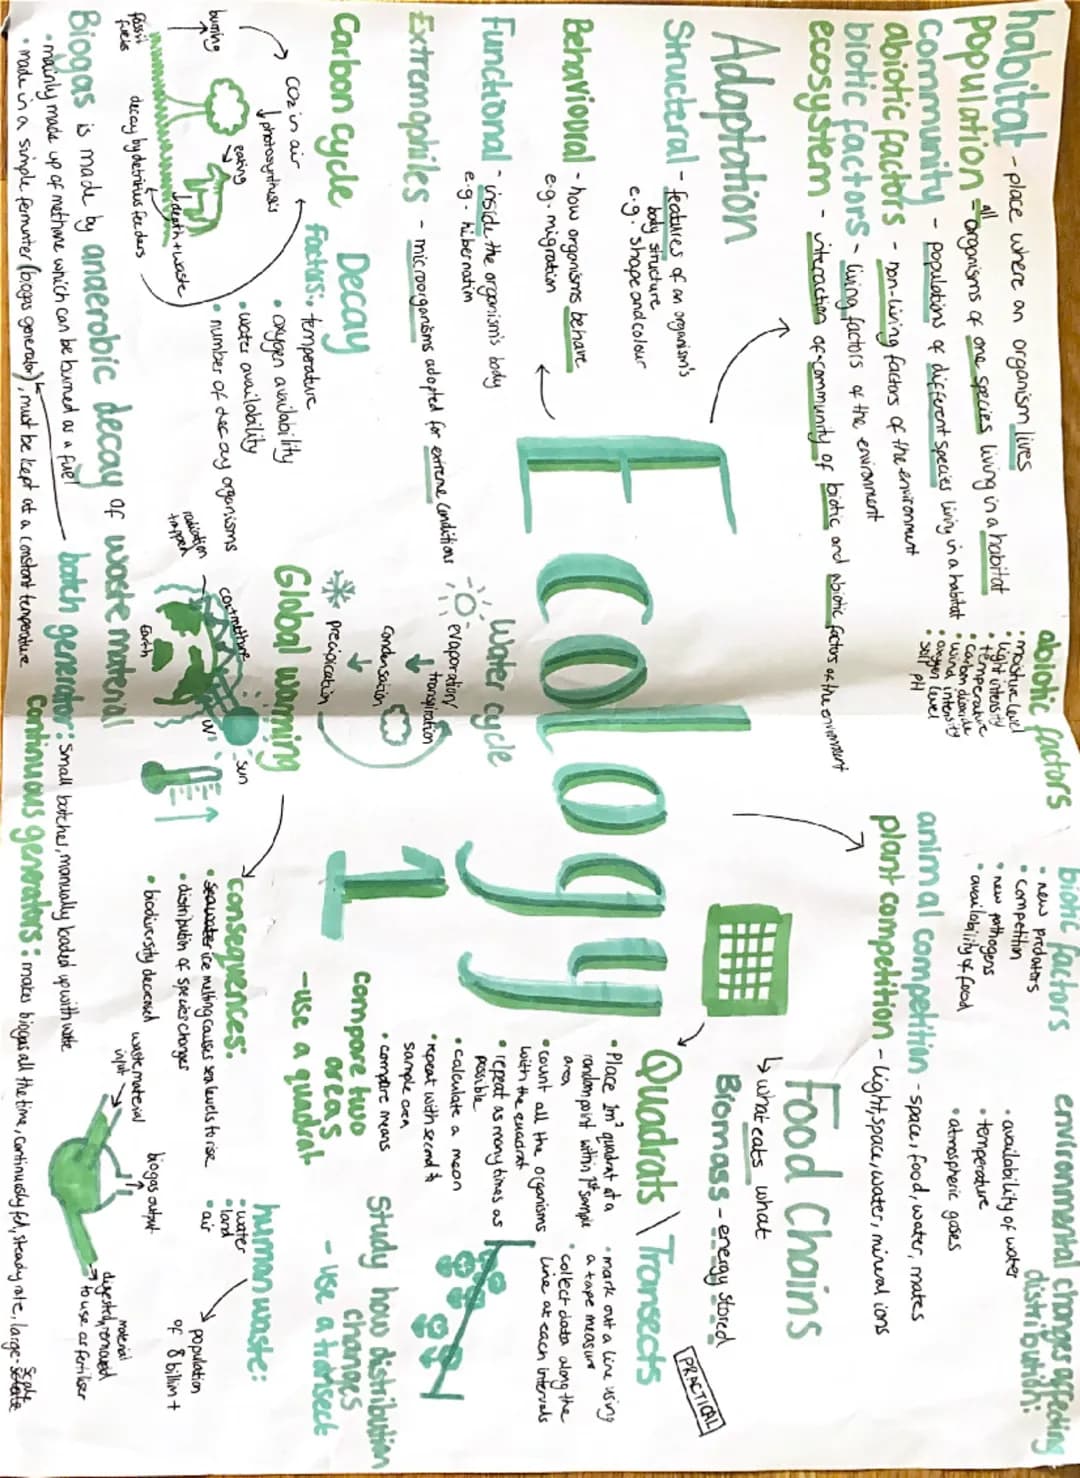 habitat - place where an organism lives
population - all organisms of one species living in a habitat
community - populations of different species living in a habitat
abiotic factors - non-living factors of the environment
biotic factors - living factors of the environment
ecosystem - interaction of community of biotic and abiotic factors of the environment
abiotic factors
• moisture level
• light intensity
• temperature
• carbon dioxide
• wind intensity
• oxygen level
• soil pH
biotic factors
• new predators
• competition
• new pathogens
• availability of food
environmental changes affecting
distribution:
• availability of water
• temperature
• atmospheric gases
animal competition - space, food, water, mates
plant competition - light, space, water, mineral ions
Adaption
Structural - features of an organism's
body structure
e.g. shape and colour
Behavioural - how organisms behave
e.g. migration
Functional - inside the organism's body
e.g. hibernation
Extremophiles - microorganisms adapted for extreme conditions
Ecology
1
Food Chains
↳ what eats what
Biomass - energy stored
PRACTICAL
Quadrats \ Transects
• Place 1m² quadrat at a
random point within 1st sample
area
• count all the organisms
with the quadrat
• repeat as many times as
possible
• calculate a mean
• repeat with second
sample area
• compare means
• mark out a line using
a tape measure
• collect data along the
line at each intervals
compare two
areas
- use a quadrat
Study how distribution
changes
- use a transect
Water cycle
evaporation/
transpiration
condensation
precipitation
Carbon cycle
CO2 in air
↓ photosynthesis
burning
fossil
fuels
eating
death + waste
decay by detritus feeders
Decay
factors: • temperature
• oxygen availability
• water availability
• number of decay organisms
Global warming
radiation
trapped
Earth
UV
sun
consequences:
• ice melting causes sea levels to rise
• distribution of species changes
• biodiversity decreased
human waste:
• water
• land
• air
population
of 8 billion +
Biogas is made by anaerobic decay of waste material
• mainly made up of methane which can be burned as a fuel
• made in a simple fermenter (biogas generator), must be kept at a constant temperature
batch generator: small batches, manually loaded up with waste
continuous generators: makes biogas all the time, continuously fed, steady rate, large-scale
waste material
input
biogas output
digested material
removed
to use as fertiliser